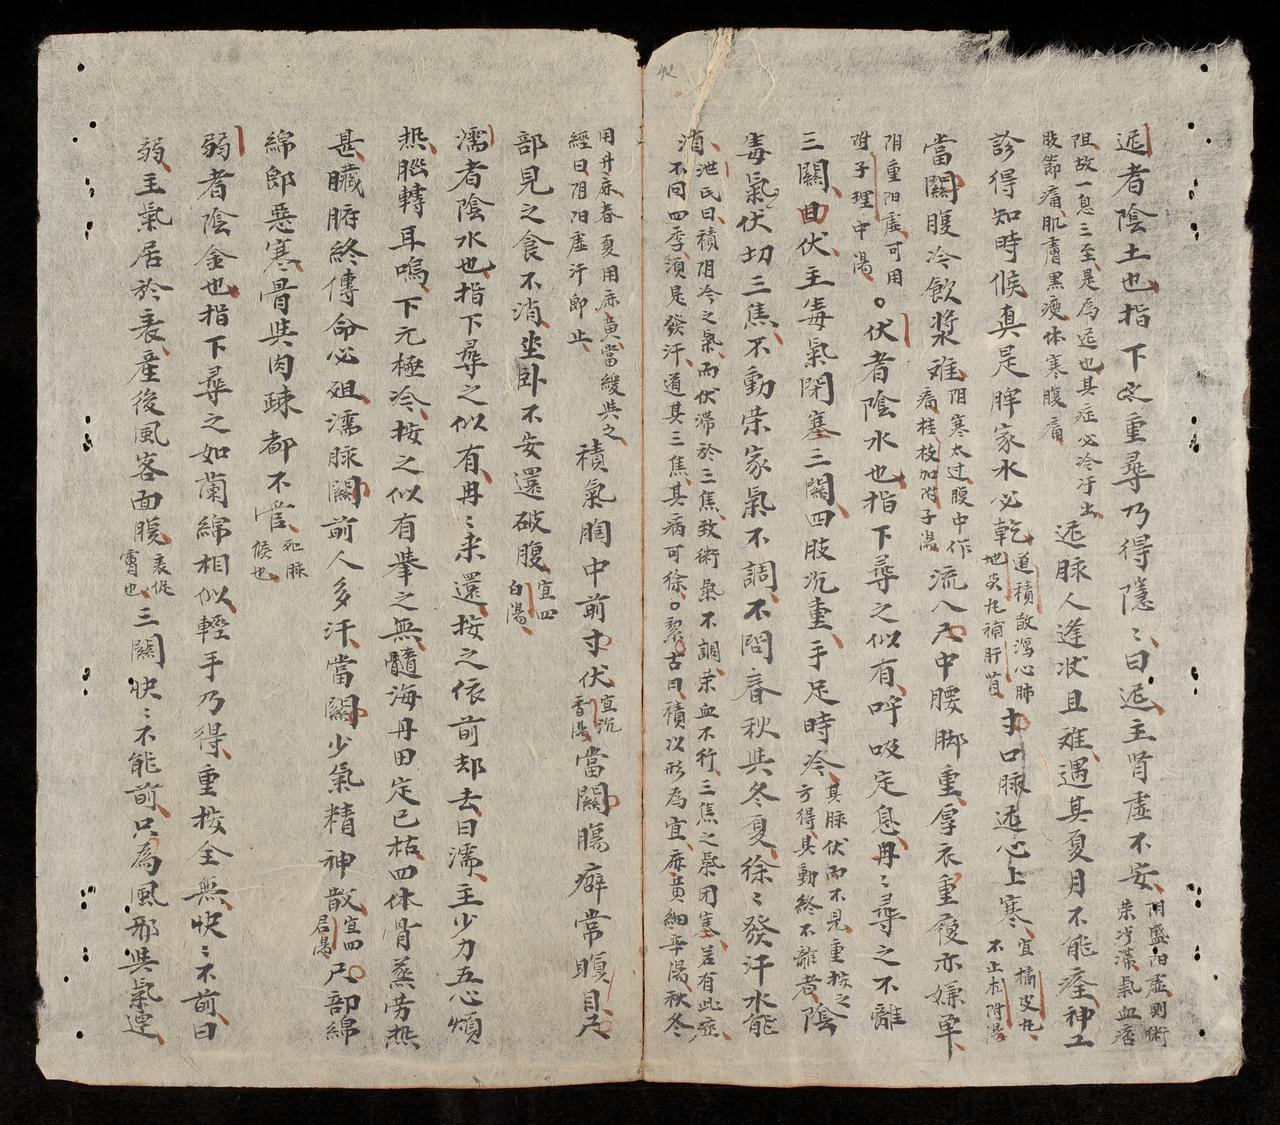 42
遅者陰土也指下㝷之重尋乃得隱〻曰遅主肾虚不安 阴盛阳虚則術
荣沍滞氣血痞
阻故一息三至是為遅也其症必冷汗出
肢節痛肌膚黑瘦体寒腹痛
遅脉人逢状且难遇其夏月不能痊神工
診得知時候真是脾家水必乾 道積散瀉心肺
地黄丸補肝肾
寸口脉遅心上寒 宜橘皮丸
不止朮附湯
當關腹冷飲漿难 阴寒太过腹中作
痛桂枝加附子湯
流入尺中腰脚重厚衣重覆亦嫌单
阴重阳虚可用
附子理中湯
○伏者陰水也指下尋之似有呼吸定息冉〻尋之不離
三關曰伏主毒氣閉塞三關四肢沉重手足時冷 其脉伏而不見重按之
方得其動終不離者
陰
毒氣伏切三焦不動荣家氣不調不問春秋共冬夏徐〻發汗水能
消 池氏曰積阴冷之氣而伏滞於三焦致術氣不調荣血不行三焦之氣闭塞若有此症
不问四季須是發汗道其三焦其病可徐○黎古曰積以形為宜麻黄細辛湯秋冬
用升麻春夏用麻黄當緩共之
經曰阴阳虚汗即止
積氣胸中前寸伏 宜沉
香湯
當關腸癖常瞑目尺
部見之食不消坐卧不安還破腹 宜四
白湯
濡者陰水也指下尋之似有冉〻来還按之依前却去曰濡主少力五心煩
热脳轉耳鳴下元極冷按之似有舉之無髓海丹田定已枯四体骨蒸劳热
甚臟腑終傳命必殂濡脉關前人多汗當關少氣精神散 宜四
君湯
尺部綿
綿即惡寒骨共肉疎都不管 死脉
候也
弱者陰金也指下尋之如蘭綿相似輕手乃得重按全無快〻不前曰
弱主氣居於表産後風客面腹 表促
胃也
三關快〻不能前只為風邪共氣運